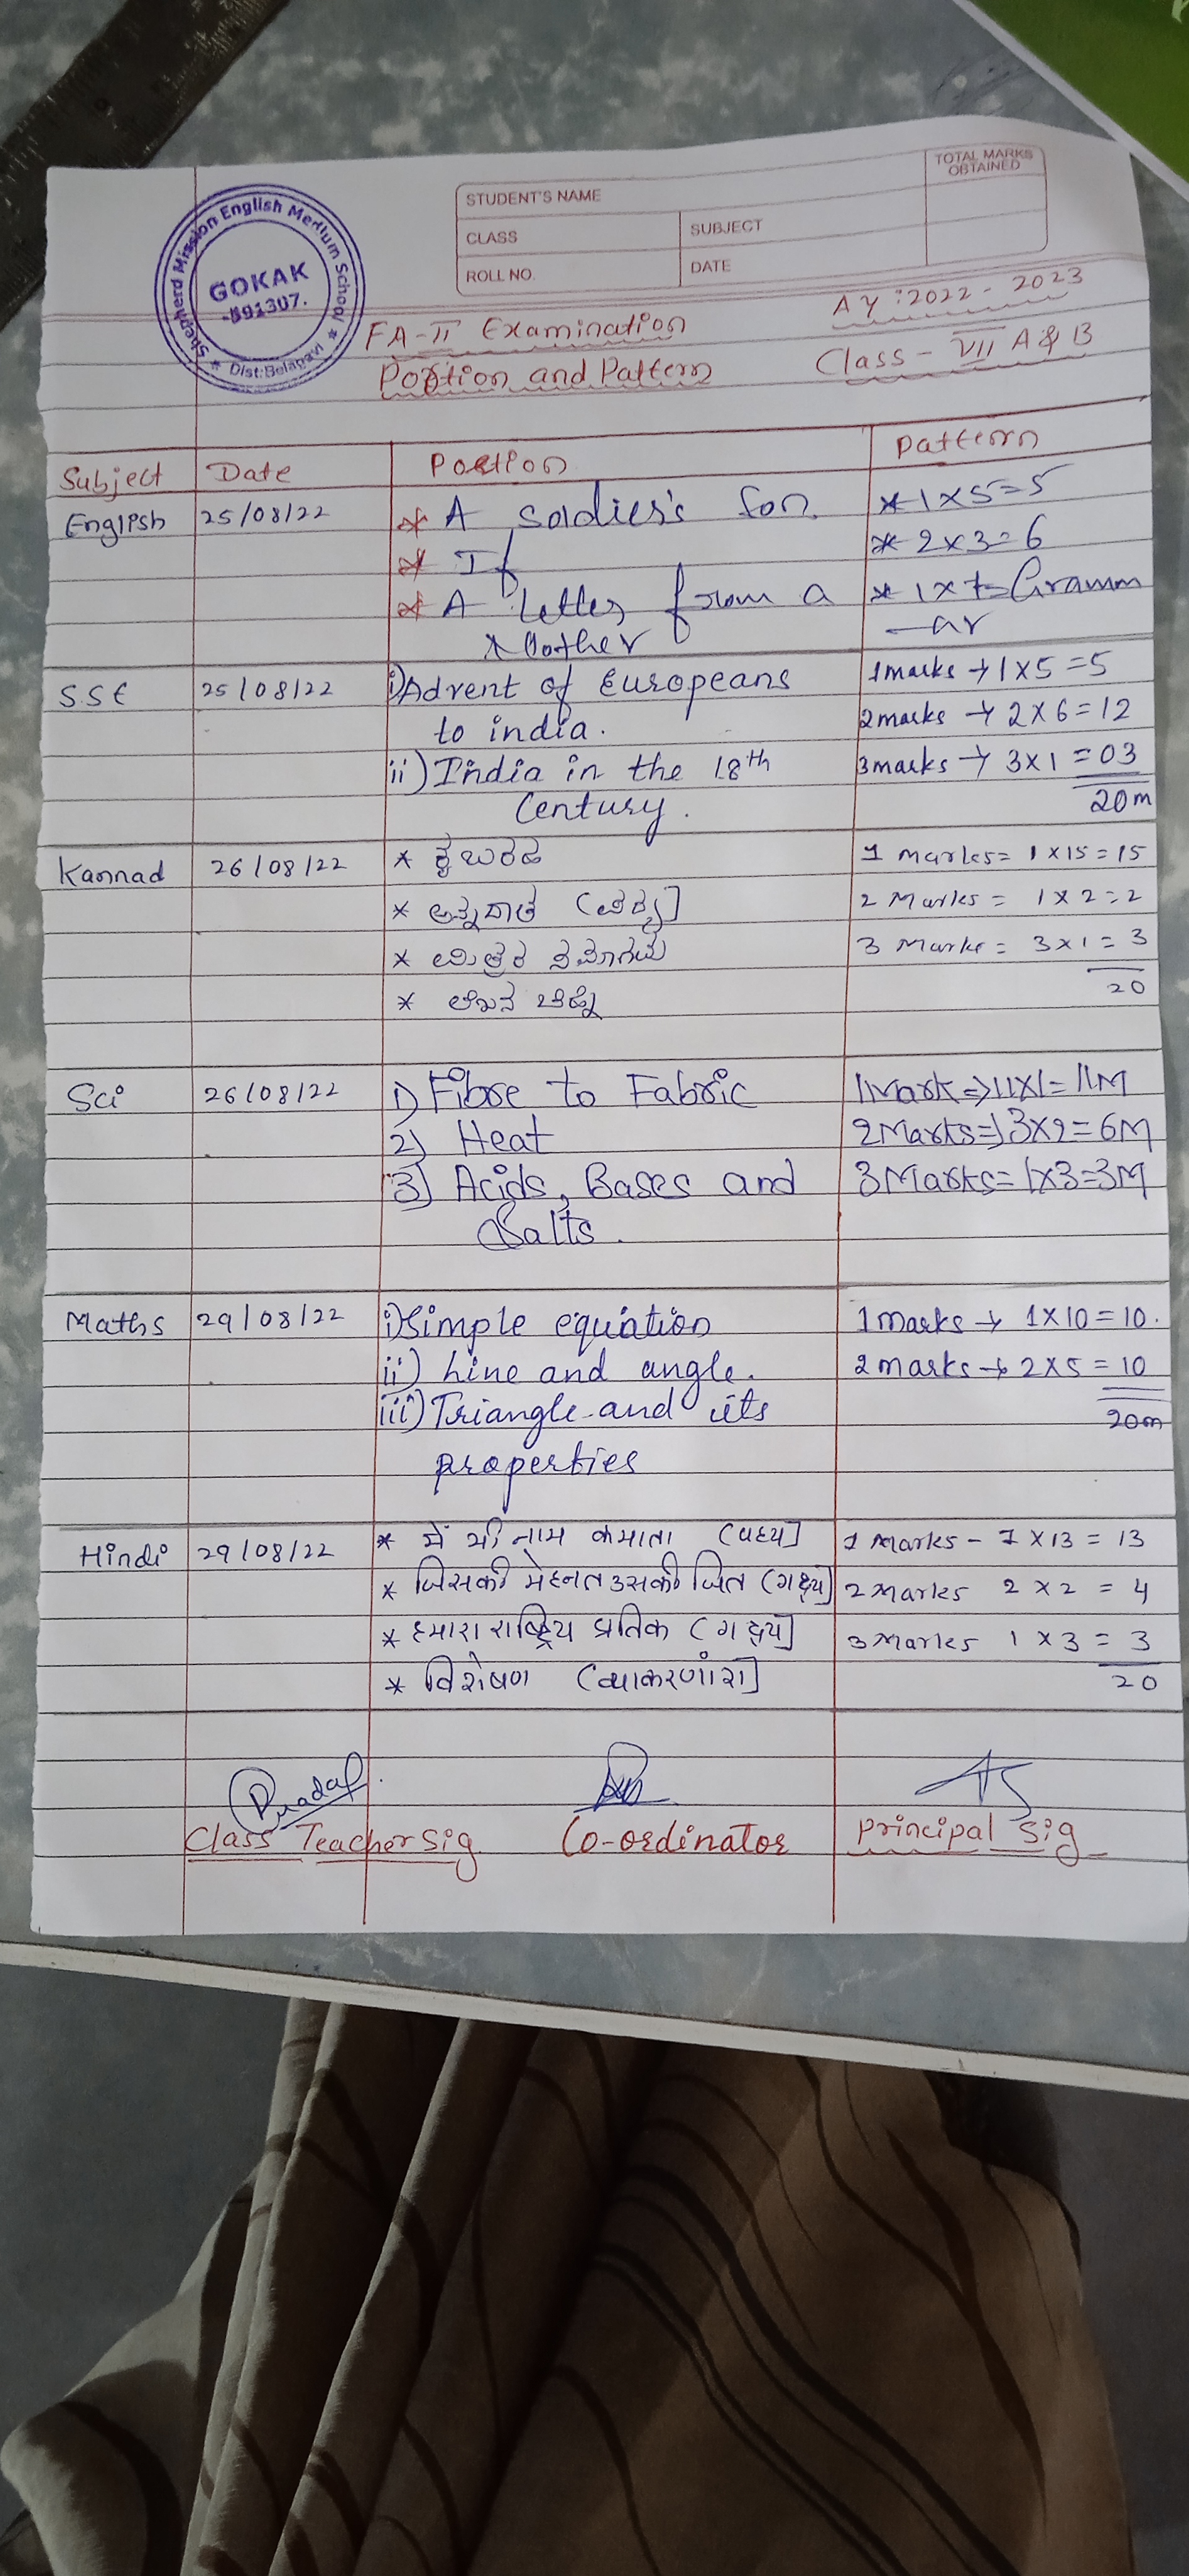 Shepherd Mission English Medium School
GOKAK
-591307.
* Dist:Belagavi *
STUDENT'S NAME
TOTAL MARKS
OBTAINED
CLASS
SUBJECT
ROLL NO.
DATE
AY:2022-2023
FA-II Examination
Class - VII A & B
Portion and Pattern
Subject Date Portion Pattern
English 25/08/22 * A soldier's son. * 1x5=5
* If * 2x3=6
* A letter from a * 1x Gramm
Mother -ar
S.S.E 25/08/22 i) Advent of Europeans 1marks → 1x5=5
to india. 2marks → 2x6=12
ii) India in the 18th 3marks → 3x1=03
Century. 20m
Kannad 26/08/22 * 1 Marks= 1x15=15
* ಅನ್ನದಾತ 2 Marks = 1x2=2
* 3 Marks = 3x1=3
* ಲೇಖನ ಚಿಹ್ನೆ 20
Sci 26/08/22 1) Fibre to Fabric 1Mark=>11x1=11M
2) Heat 2Marks=>3x2=6M
3) Acids, Bases and 3Marks=1x3=3M
Salts.
Maths 29/08/22 i) Simple equation 1marks → 1x10=10.
ii) Line and angle. 2marks → 2x5=10
iii) Triangle and its 20m
properties
Hindi 29/08/22 * में भी नाम कमाता (पध्य] 1 Marks - 1x13=13
* जिसकी मेहनत उसकी जित (गध्य] 2Marks 2x2=4
* हमारा राष्ट्रिय प्रतिक (गध्य] 3Marks 1x3=3
* विशेषण (व्याकरणांश] 20
Class Teacher Sig Co-ordinator Principal Sig